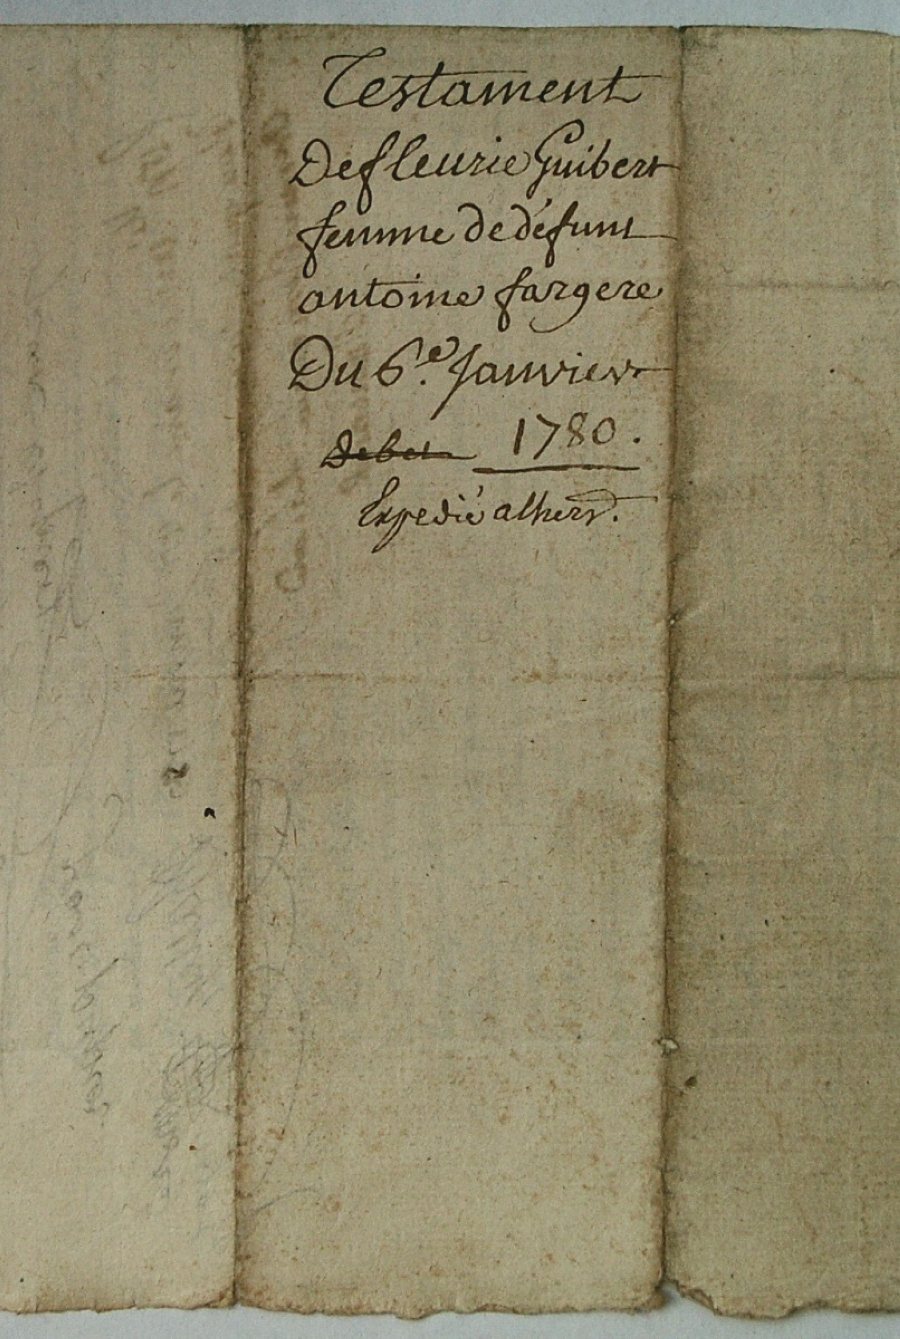 Testament
De fleurie Guibert
femme de défunt
antoine fargere
Du 6.e Janvier
debet 1780.
Expedié alherr.